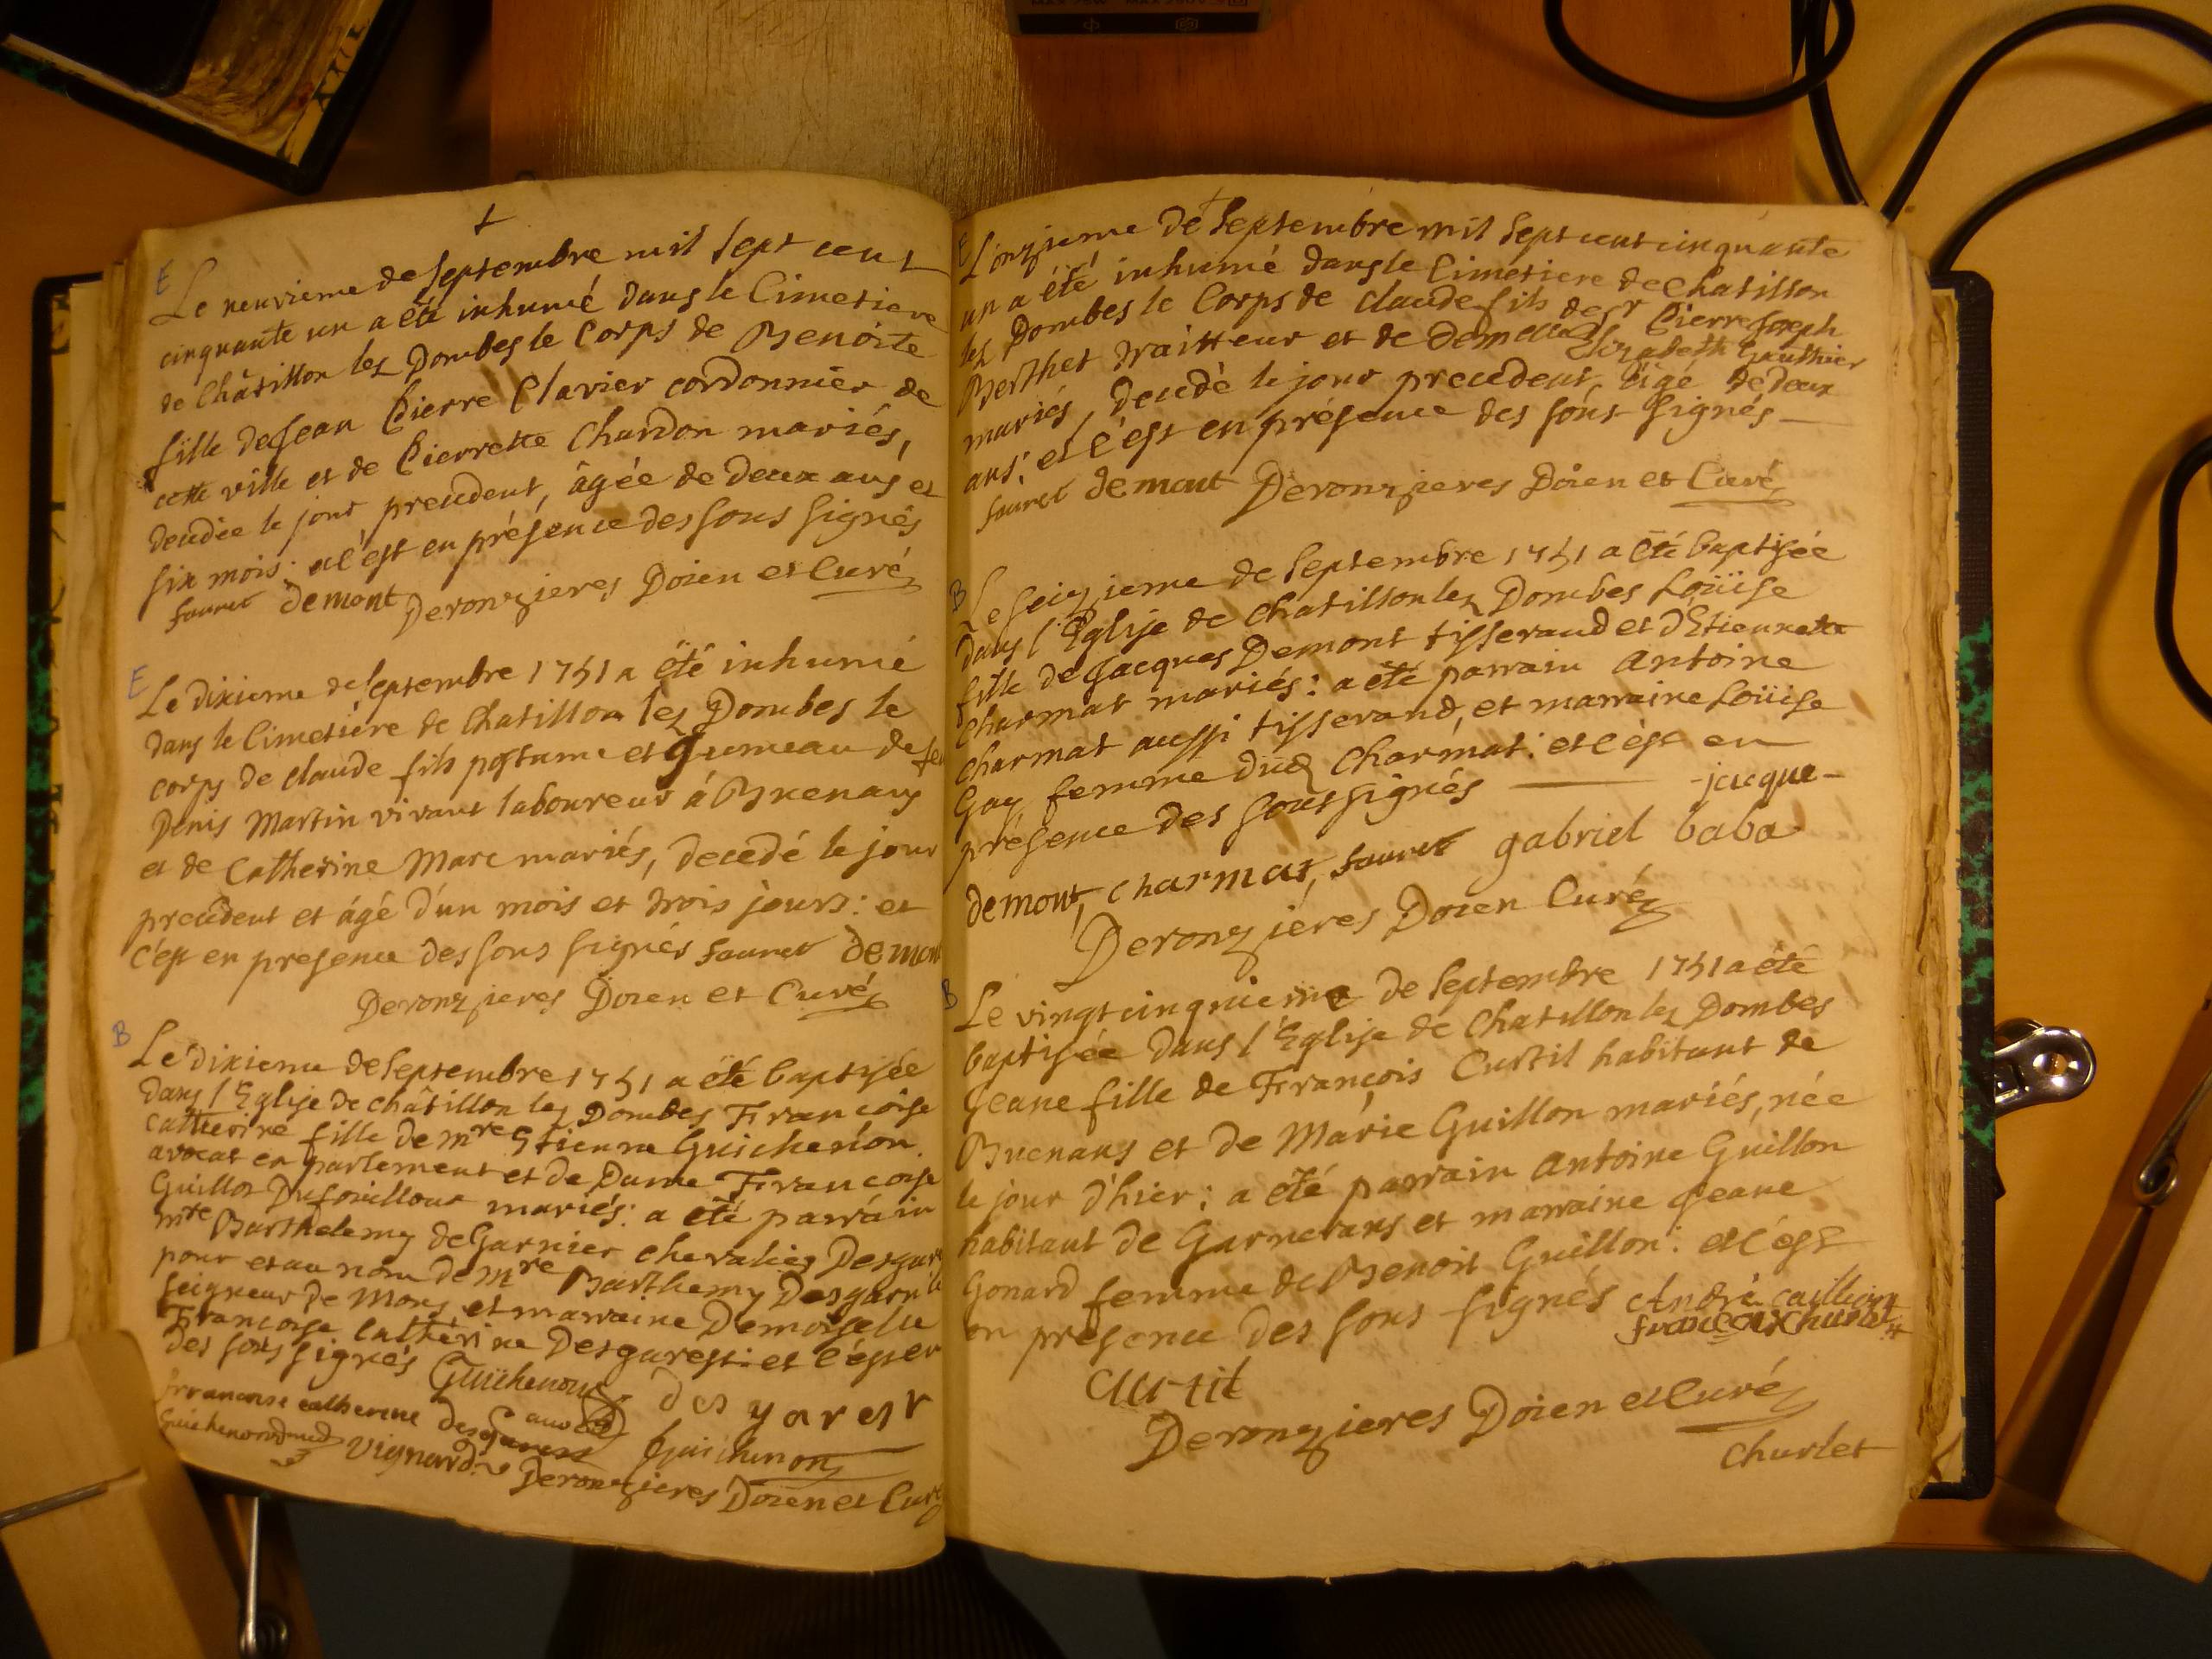 E
Le neuvieme de Septembre mil Sept cent
cinquante un a été inhumé dans le Cimetiere
de Châtillon lez Dombes le Corps de Benoite
fille de Jean Pierre Clavier cordonnier de
cette ville et de Pierrette Chardon mariés,
decedée le jour precedent, âgée de deux ans et
six mois: et c'est en présence des sous signés
fauret demont Deronzieres Doien et Curé
E
Le dixieme de Septembre 1751 a été inhumé
dans le Cimetiére de Chatillon lez Dombes le
corps de claude fils postume et gumeau de feu
Denis Martin vivant laboureur á Buenans
et de Catherine Marc mariés, decedé le jour
precedent et ágé d'un mois et trois jours: et
c'est en presence des sous signés fauret demont
Deronzieres Doien et Curé
B
Le dixieme de Septembre 1751 a été baptisée
dans l'Eglise de châtillon lez Dombes Francoise
catherine fille de mre Etienne Guichenon
avocat en parlement et de Dame Francoise
Guillot Dufouilloux mariés: a été parrain
mre Barthelemy de Garnier chevalier Desgar
pour et au nom de mre Barthemy Desgar
seigneur de Mons et marraine Demoiselle
Francoise Catherine Desgarest: et c'ést en
des sous signés Guichenon des garest
francoise catherine Desgarest Guichenon
Guichenon Vignard Deronzieres Doien et Curé
E
L'onzieme de Septembre mil Sept cent cinquante
un a été inhumé dans le Cimetiere de Chatillon
lez Dombes le Corps de claude fils de sr Pierre Joseph
Berthet traitteur et de demelle Elizabeth Gauthier
mariés, decedé le jour precedent, âgé de deux
ans: et c'est en présence des sous signés
fauret demont Deronzieres Doien et Curé
B
Le seizieme de Septembre 1751 a été baptisée
dans l'Eglise de Chatillon lez Dombes Loüise
fille de Jacques Demont tisserand et d'Etiennette
charmat mariés: a été parrain Antoine
charmat aussi tisserand, et marraine Loüise
Gay femme dud Charmat: et c'ést en
présence des sous signés jacque
demont, charmat, fauret gabriel baba
Deronziéres Doien Curé
B
Le vingt cinquieme de Septembre 1751 a été
baptisée dans l'Eglise de Chatillon lez Dombes
Jeane fille de François Curtil habitant de
Buenans et de Marie Guillon mariés, née
le jour d'hier: a été parrain Antoine Guillon
habitant de Garnerans et marraine Jeane
Gonard femme de Benoit Guillon: et c'ést
en presence des sous signés André
francoix churlet
Curtil
Deronzieres Doien et Curé
Churlet